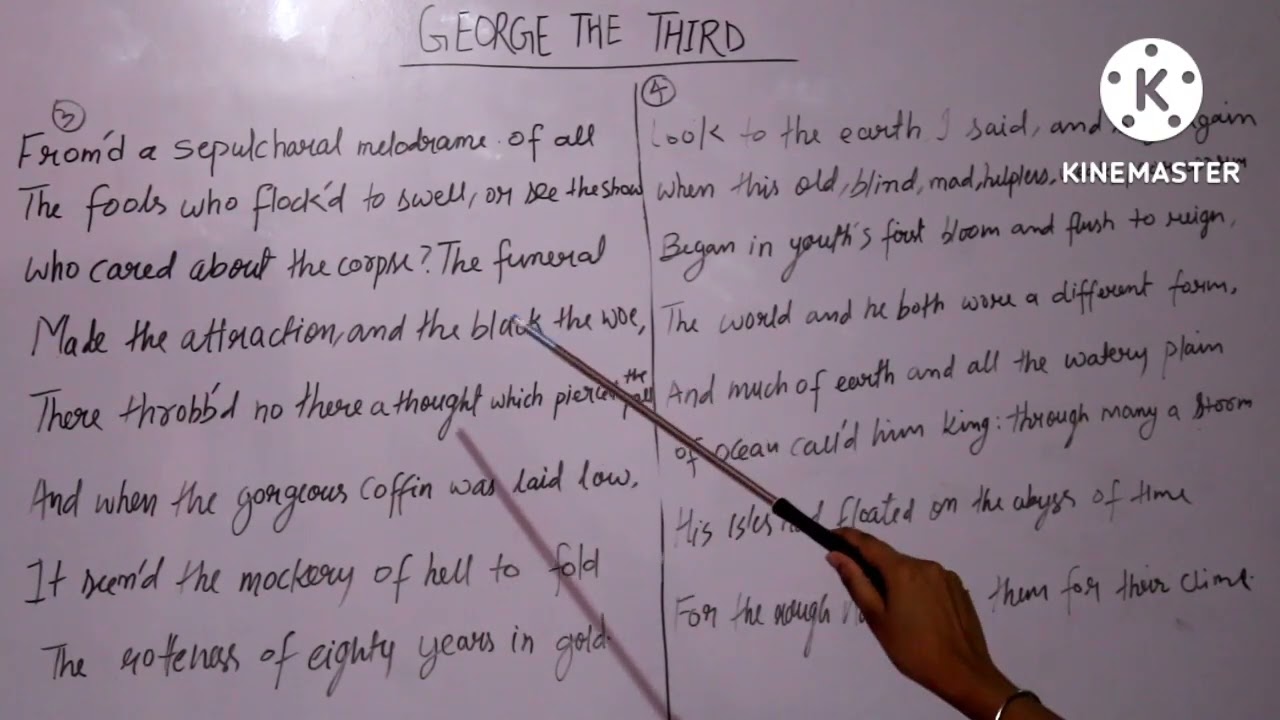 GEORGE THE THIRD
3
From'd a sepulcharal melodrame. of all
The fools who flock'd to swell, or see the show
Who cared about the corpse? The funeral
Made the attraction, and the black the woe,
There throbb'd no there a thought which pierced the pall
And when the gorgeous coffin was laid low,
It seem'd the mockery of hell to fold
The rotteness of eighty years in gold.
4
Look to the earth I said, and again
when this old, blind, mad, helpless,
Began in youth's fout bloom and flush to reign,
The world and he both wore a different form,
And much of earth and all the watery plain
of ocean call'd him king: through many a storm
His Isles had floated on the abyss of time
For the rough them for their clime.
K
KINEMASTER